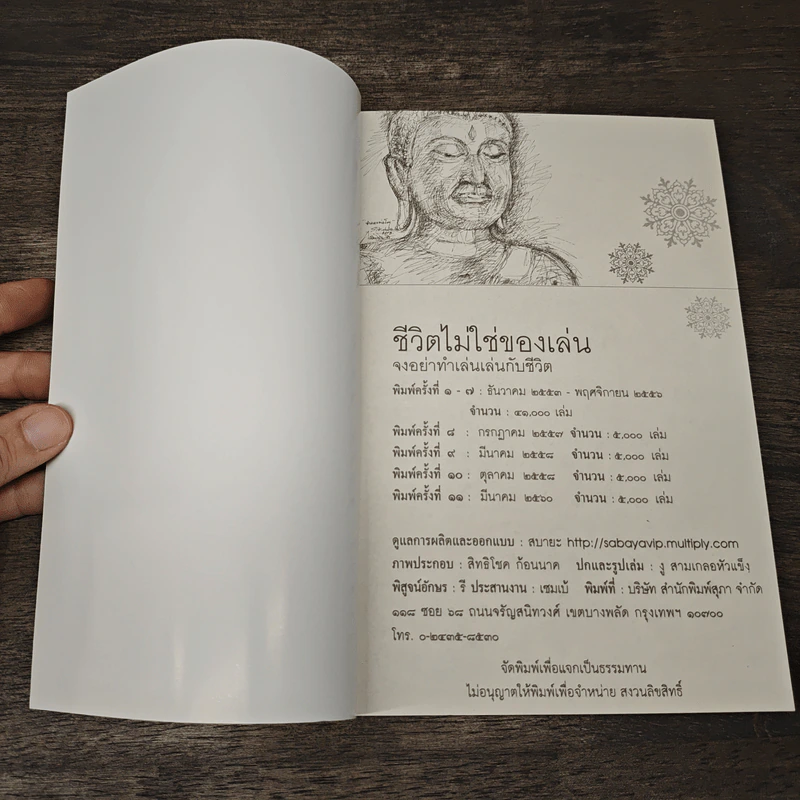 ชีวิตไม่ใช่ของเล่น
จงอย่าทำเล่นเล่นกับชีวิต
พิมพ์ครั้งที่ ๑ - ๗ : ธันวาคม ๒๕๕๓ - พฤศจิกายน ๒๕๕๖
จำนวน : ๔๑,๐๐๐ เล่ม
พิมพ์ครั้งที่ ๘ : กรกฎาคม ๒๕๕๗ จำนวน : ๕,๐๐๐ เล่ม
พิมพ์ครั้งที่ ๙ : มีนาคม ๒๕๕๘ จำนวน : ๕,๐๐๐ เล่ม
พิมพ์ครั้งที่ ๑๐ : ตุลาคม ๒๕๕๘ จำนวน : ๕,๐๐๐ เล่ม
พิมพ์ครั้งที่ ๑๑ : มีนาคม ๒๕๖๐ จำนวน : ๕,๐๐๐ เล่ม
ดูแลการผลิตและออกแบบ : สบายะ http://sabayavip.multiply.com
ภาพประกอบ : สิทธิโชค ก้อนนาค ปกและรูปเล่ม : งู สามเกลอหัวแข็ง
พิสูจน์อักษร : รี ประสานงาน : เซมเบ้ พิมพ์ที่ : บริษัท สำนักพิมพ์สุภา จำกัด
๑๑๘ ซอย ๖๘ ถนนจรัญสนิทวงศ์ เขตบางพลัด กรุงเทพฯ ๑๐๗๐๐
โทร. ๐-๒๔๓๕-๘๕๓๐
จัดพิมพ์เพื่อแจกเป็นธรรมทาน
ไม่อนุญาตให้พิมพ์เพื่อจำหน่าย สงวนลิขสิทธิ์